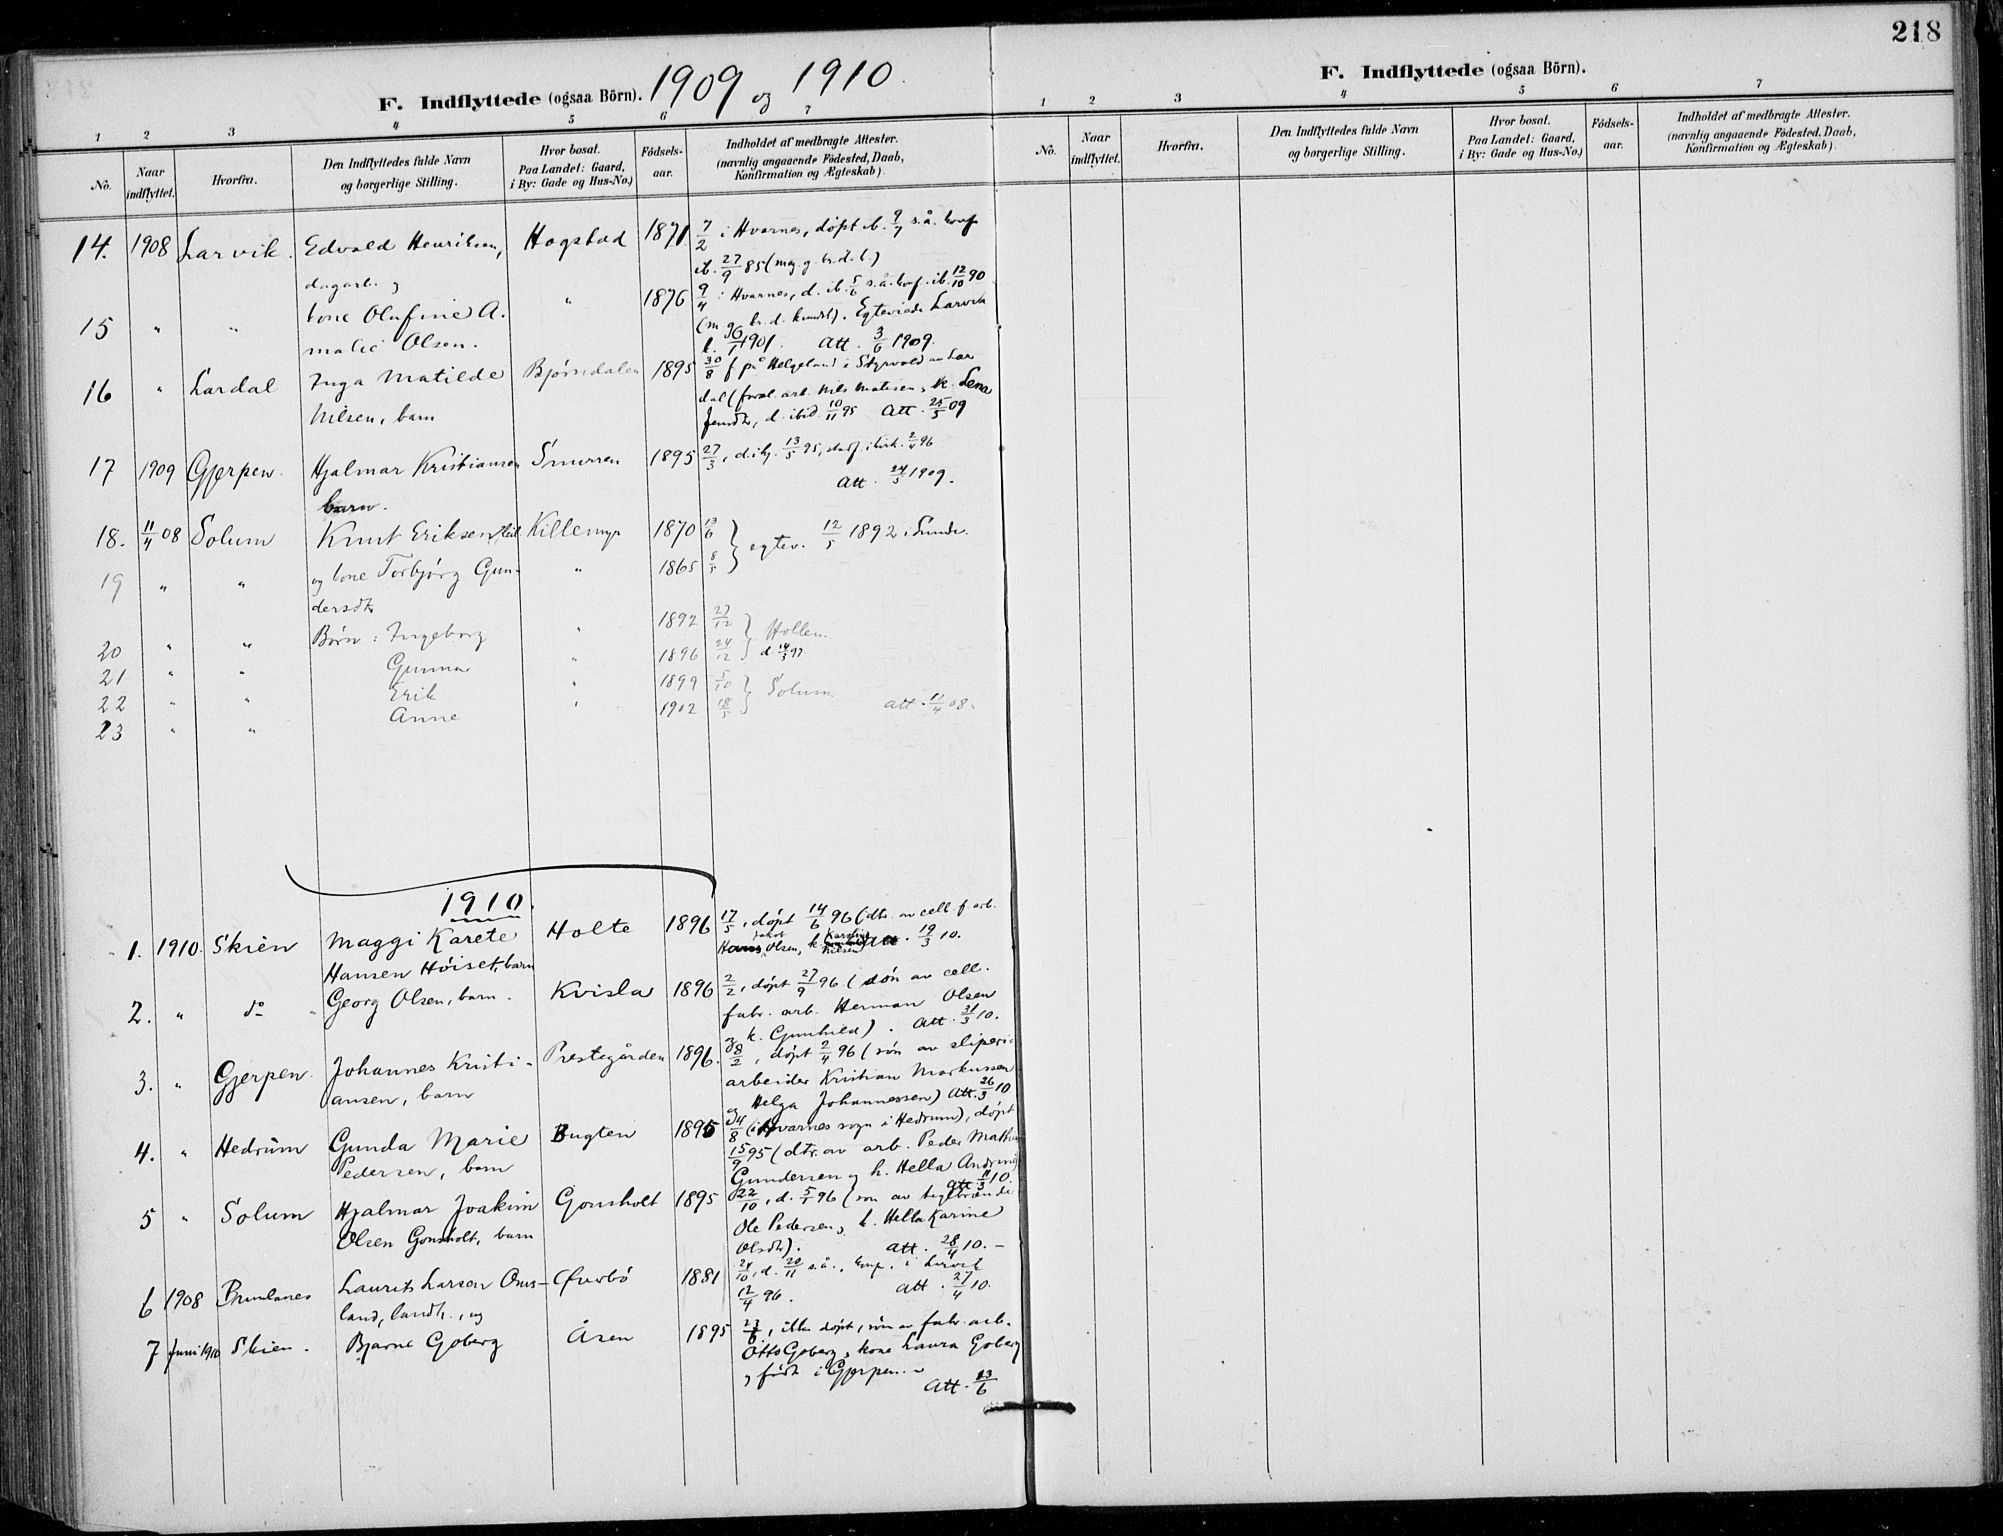 218
F. Indflyttede (ogsaa Börn). 1909 og 1910.
1 2 3 4 5 6 7
No.
Naar indflyttet.
Hvorfra.
Den Indflyttedes fulde Navn
og borgerlige Stilling.
Hvor bosat.
Paa Landet: Gaard,
i By: Gade og Hus-No.)
Födsels-
aar.
Indholdet af medbragte Attester.
(navnlig angaaende Födested, Daab,
Konfirmation og Ægteskab).
14. 1908 Larvik. Edvald Henriksen, Hogstad 1871 7/2 i Hvarnes, døpt ib. 9/7 s.å. konf
dagarb. og ib. 27/9 85 (mg. g. kr.d.k.)
15 " " kone Olufine A. " 1876 9/4 i Hvarnes, d. ib. 5/6 s.å. konf. ib. 12/10 90
malie Olsen. Egteviede Larvik
1901. Att. 3/6 1909.
16 " Lardal Inga Matilde Bjørndalen 1895 30/8 f på Helgeland i Styrvold
Nilsen, barn dal d. ibid. 10/11 95 Att. 25/5 09
17 1909 Gjerpen. Hjalmar Kristiansen Smurren 1895 27/3, 13/5 95, 2/4 96
barn. Att. 24/5 1909.
18. 11/4 08 Solum Knut Eriksen Killemyr 1870 13/6 } egtev. 12/5 1892 i Sunde.
19 " " og kone Torbjørg Gun- " 1865 8/5
dersdtr
20 " " Børn: Ingeborg " 1892 27/12 } Hollen.
21 " " Gunnar " 1896 24/12 d. 14/3 97
22 " " Erik " 1899 5/10 } Solum
23 " " Anne " 1902 18/5 att. 11/4 08.
1910.
1. 1910. Skien Maggi Karete Holte 1896 17/5, døpt 14/6 96 (dtr. av cell. f. arb.
Hansen Höiset, barn Olsen, k. Karoline Nilsen Att. 19/3 10.
2. " do Georg Olsen, barn. Kvisla 1896 2/2, døpt 27/9 96 (søn av cell.
fabr. arb. Herman Olsen
og k. Gunhild). Att. 31/3 10.
3. " Gjerpen. Johannes Kristi- Prestegården 1896. 8/2, døpt 2/4 96 (søn av sliperi-
ansen, barn arbeider Kristian Markussen
og Helga Johannessen) Att. 26/3 10
4. " Hedrum Gunda Marie Bugten 1895 4/8 (i Hvarnes sogn i Hedrum), døpt
Pedersen, barn 15/9 95 (dtr. av arb. Peder Mathias
Gundersen og h. Hella
Att 11/3 10.
5 " Solum Hjalmar Joakim Gonsholt 1895 22/10, d. 5/1 96 (søn av
Olsen Gonsholt, barn Ole Pedersen og h. Hella Karine
Olsdtr). Att. 28/4 10. –
6 1908 Brunlanes Laurits Larsen Ono- Øverbö 1881 24/10, d. 20/11 s.å., konf. i Larvik
land, landh., og 12/4 96. Att. 27/4 10.
7 Juni 1910 Skien. Bjarne Goberg Åsen 1895 23/6, ikke døpt, søn av fabr. arb.
Otto Goberg og kone Laura Goberg
, født i Gjerpen. –
Att. 13/6
F. Indflyttede (ogsaa Börn).
1 2 3 4 5 6 7
No.
Naar indflyttet.
Hvorfra.
Den Indflyttedes fulde Navn
og borgerlige Stilling.
Hvor bosat.
Paa Landet: Gaard,
i By: Gade og Hus-No.)
Födsels-
aar.
Indholdet af medbragte Attester.
(navnlig angaaende Födested, Daab,
Konfirmation og Ægteskab).